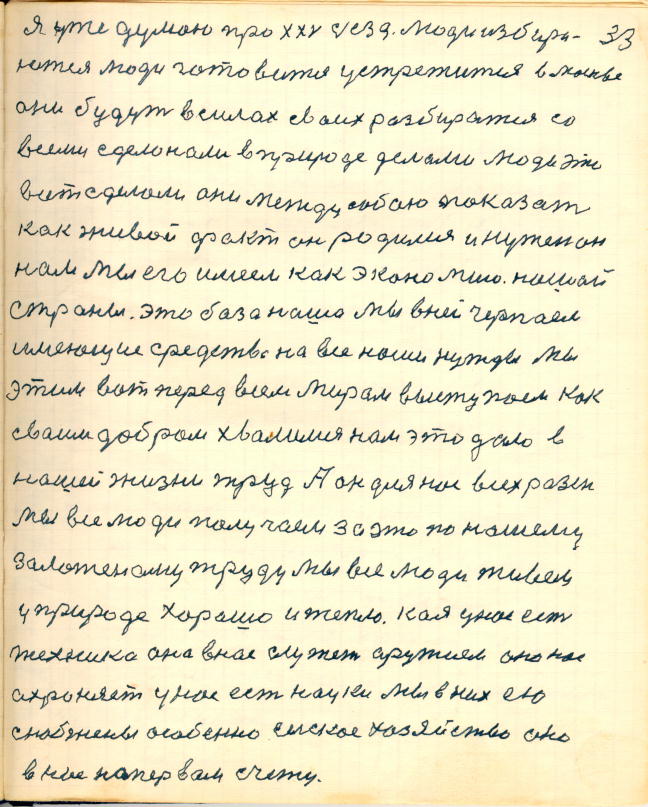 Я уже думаю про XXV съезд. Люди избира- 33
ются люди готовится устретится в Москве
они будут в силах своих разбиратся со
всеми сделонами в природе делами люди это
вот сделали они между собою показат
как живой факт он родился и нужен он
нам мы его имеем как экономию. нашай
страны. это база наша мы в ней черпаем
имеющие средства на все наши нужды мы
этим вот перед всем мирам выступаем как
сваим добром хвалимся нам это дало в
нашей жизни труд А он для нас всех разен
мы все люди получаем за это по нашему
заложеному труду мы все люди живем
у природе хорошо и тепло. Кая у нас ест
техника она в нас служет аружием она нас
охроняет у нас ест науки мы в них ею
снобжены особенно сельское хозяйство оно
в нас на первам счету.